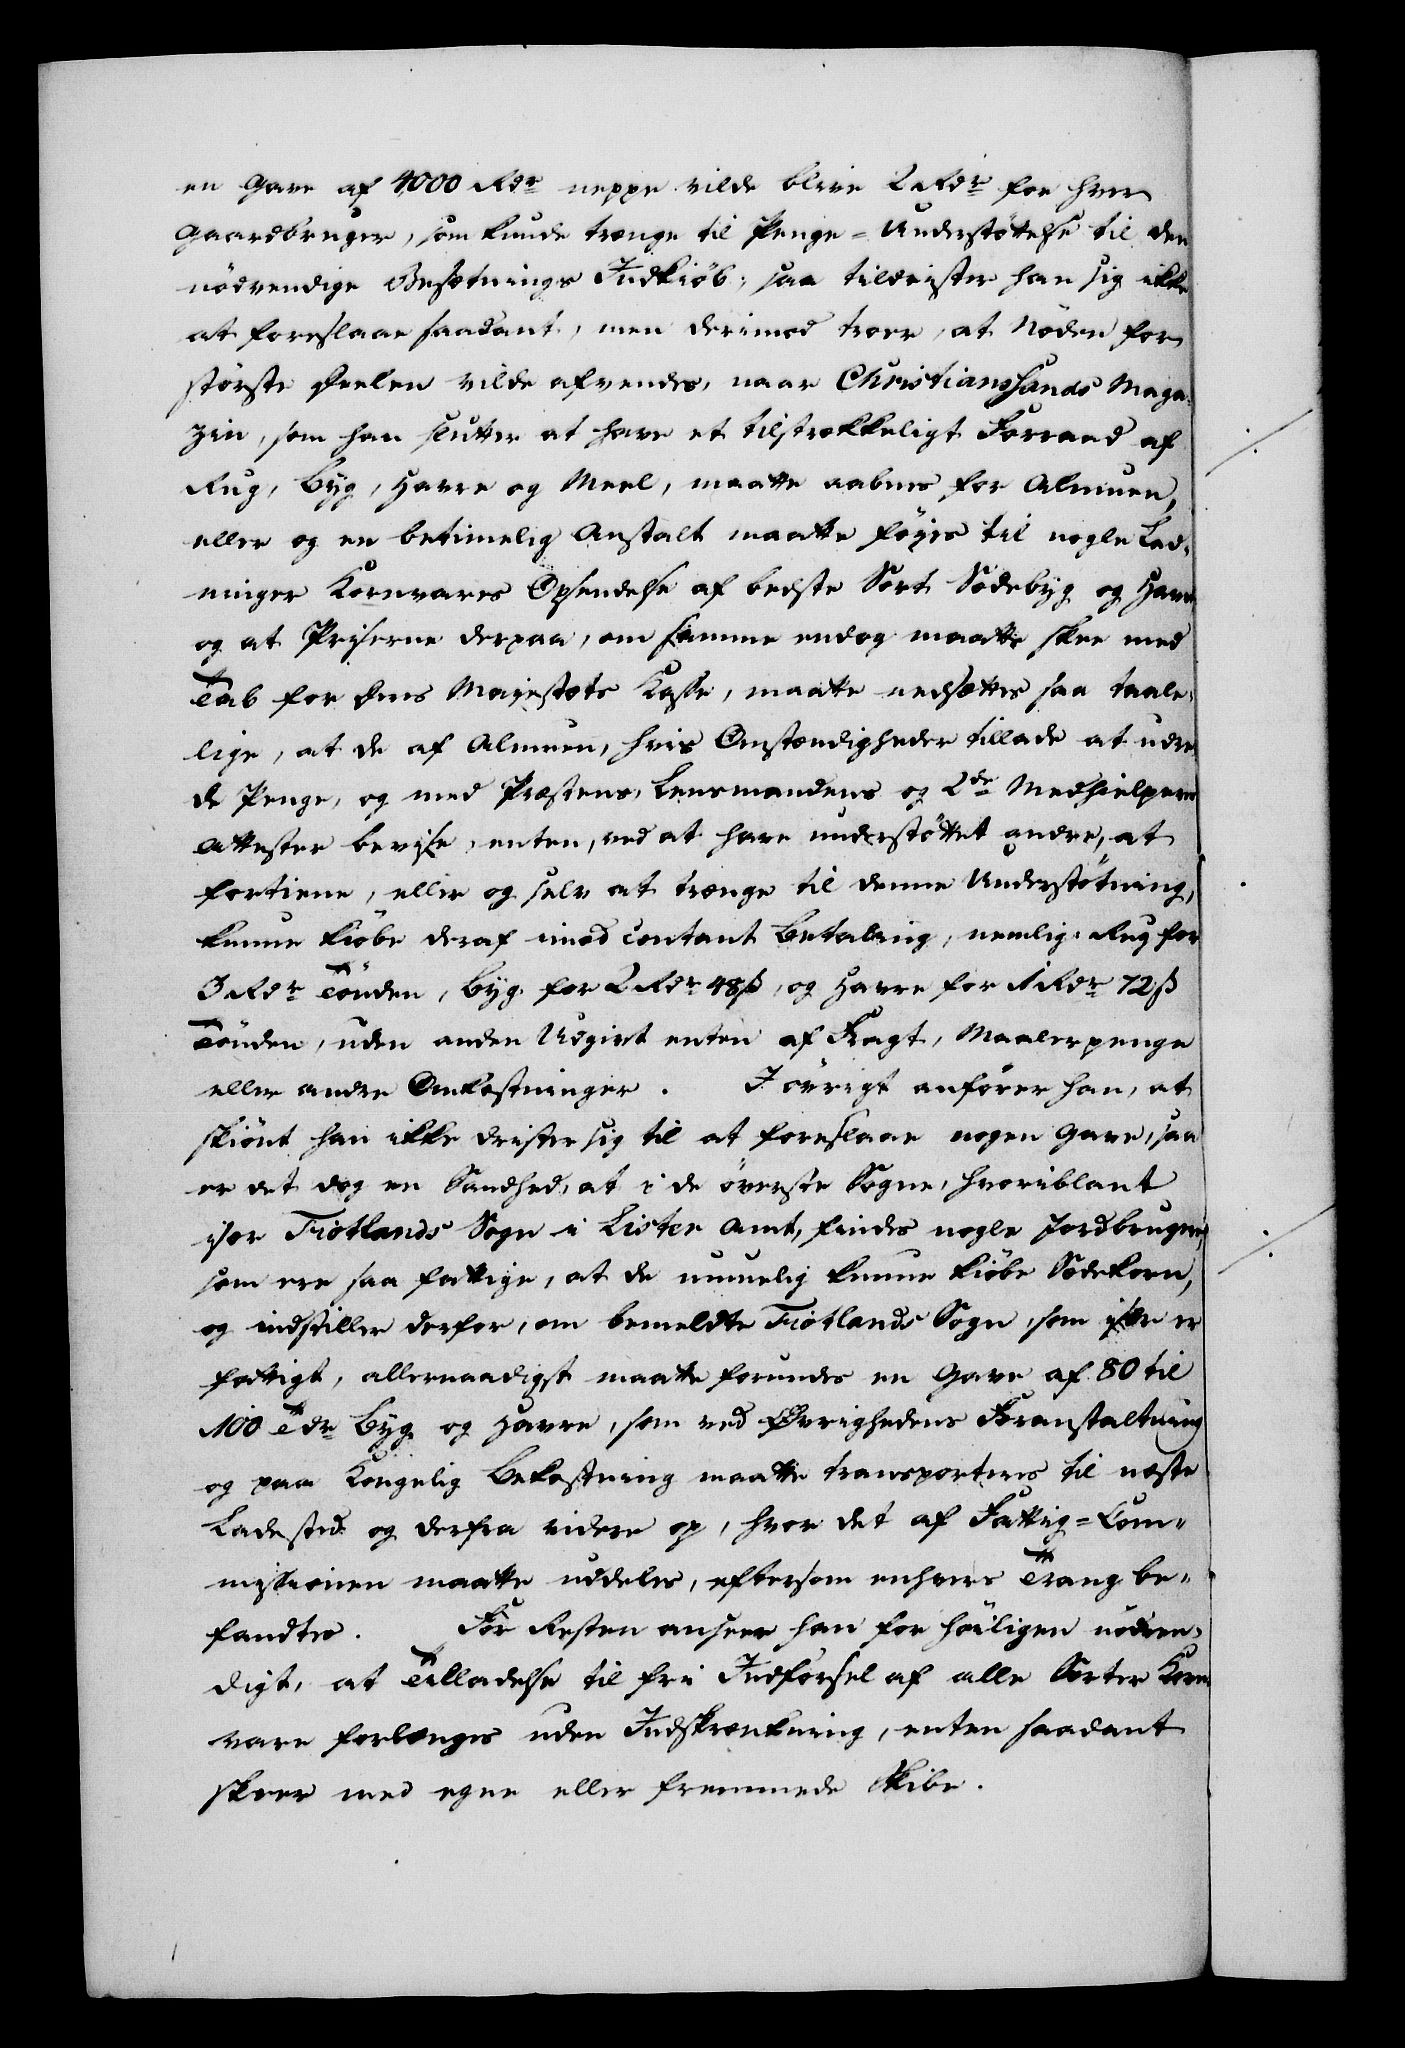 en Gave af 4000 Rdr neppe vilde blive 2 Rdr for hver
Gaardbruger, som kunde trænge til Penge-Understöttelse til den
nödvendige Besætnings Indkiöb; saa tildrister han sig ikke
at foreslaae saadant, men derimod troer, at Nöden for
störste Deelen vilde afvendes, naar Christianssands Maga-
zin, som han slutter at have et tilstrækkeligt Forraad af
Rug, Byg, Havre og Meel, maatte aabnes for Almuen,
eller og en betimelig Anstalt maatte föyes til nogle Lad-
ninger Kornvares Opsendelse af bedste Sort Sædebyg og Havre
og at Priserne derpaa, om samme endog maatte skee med
Tab for Deres Majestæts Kasse, maatte nedsættes saa taale-
lige, at de af Almuen, hvis Omstændigheder tillade at udre-
de Penge, og med Præstens, Lensmandens og 2de Medhielperes
Attester bevise, enten, ved at have understöttet andre, at
fortiene, eller og selv at trænge til denne Understötning,
kunne kiöbe deraf imod contant Betaling, nemlig: Rug for
3 Rdr Tönden, Byg for 2 Rdr 48 ß, og Havre for 1 Rdr 72 ß
Tönden, uden anden Udgivt enten af Fragt, Maalerpenge
eller andre Omkostninger. I övrigt anförer han, at
skiönt han ikke drister sig til at foreslaae nogen Gave, saa
er det dog en Sandhed, at i de överste Sogne, hvoriblant
især Fiotlands Sogn i Lister Amt, findes nogle Jordbrugere,
som ere saa fattige, at de umuelig kunne kiöbe Sædekorn,
og indstiller derfor, om bemeldte Fiotlands Sogn, som især er
fattigt, allernaadigst maatte forundes en Gave af 80 til
100 Tdr Byg og Havre, som ved Øvrighedens Foranstaltning
og paa Kongelig Bekostning maatte transporteres til næste
Ladested og derfra videre op, hvor det af Fattig-Com-
missionen maatte uddeles, eftersom enhvers Trang be-
fandtes. For Resten anseer han for höiligen nödven-
digt, at Tilladelse til fri Indförsel af alle Sorter Korn
vare forlænges uden Indskrænkning, enten saadant
skeer med egne eller fremmede Skibe.